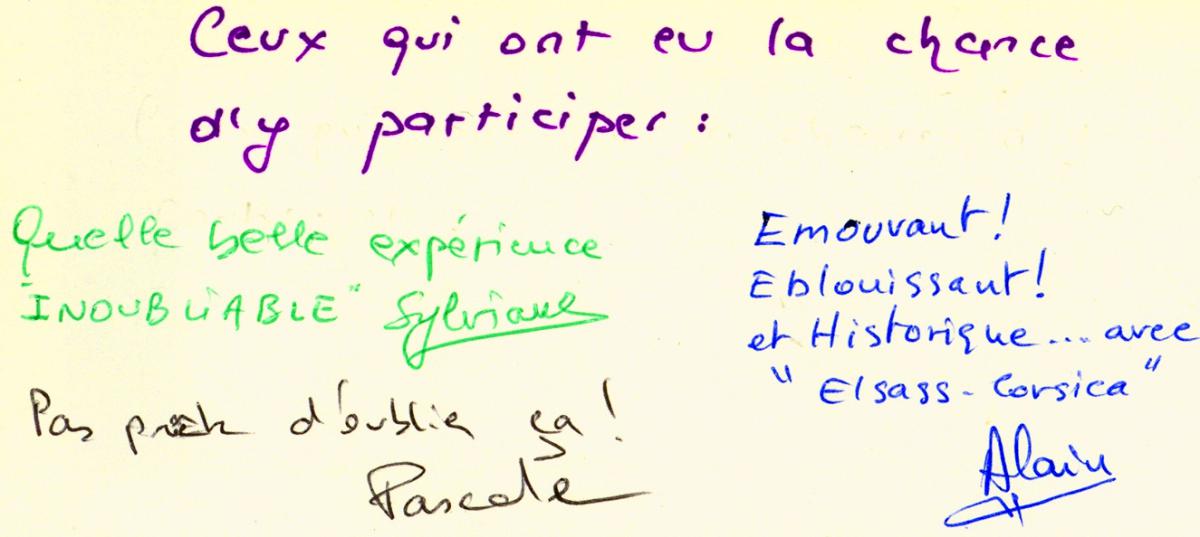 Ceux qui ont eu la chance
d'y participer :
Quelle belle expérience
"INOUBLIABLE" Sylviane
Pas prêt d'oublier ça !
Pascale
Emouvant !
Eblouissant !
et Historique... avec
"Elsass-Corsica"
Alain